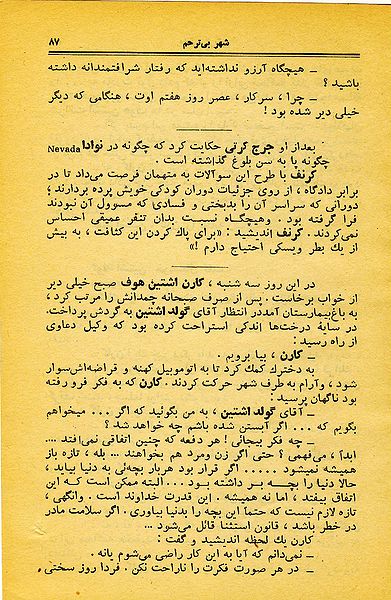 شهر بی‌ترحم ۸۷
ــ هیچگاه آرزو نداشته‌اید که رفتار شرافتمندانه داشته
باشید ؟
ــ چرا ، سرکار ، عصر روز هفتم اوت ، هنگامی که دیگر
خیلی دیر شده بود !
بعداز او جرج کرتی حکایت کرد که چگونه در نوادا Nevada
چگونه پا به سن بلوغ گذاشته است .
کرنف با طرح این سوآلات به متهمان فرصت می‌داد تا در
برابر دادگاه ، از روی جزئیات دوران کودکی خویش پرده بردارند ؛
دورانی که سراسر آن را بدبختی و فسادی که مسوول آن نبودند
فرا گرفته بود . وهیچگاه نسبت بدان تنفر عمیقی احساس
نمی‌کردند . کرنف اندیشید : «برای پاك کردن این کثافت ، به بیش
از یك بطر ویسکی احتیاج دارم !»
در این روز سه شنبه ، کارن اشتین هوف صبح خیلی دیر
از خواب برخاست . پس از صرف صبحانه چمدانش را مرتب کرد ،
به باغ‌بیمارستان آمددر انتظار آقای گولد اشتین به گردش پرداخت.
در سایهٔ درخت‌ها اندکی استراحت کرده بود که وکیل دعاوی
از راه رسید :
ــ کارن ، بیا برویم .
به دخترك کمك کرد تا به اتوموبیل کهنه و قراضه‌اش‌سوار
شود ، وآرام به طرف شهر حرکت کردند . کارن که به فکر فرو رفته
بود ناگهان پرسید :
ــ آقای گولد اشتین ، به من بگوئید که اگر ... میخواهم
بگویم که ... اگر آبستن شده باشم چه خواهد شد ؟
ــ چه فکر بیجائی ! هر دفعه که چنین اتفاقی نمی‌افتد ....
ابداً ، می‌فهمی ؟ حتی اگر زن ومرد هم بخواهند ... بله ، تازه باز
همیشه نمیشود ..... اگر قرار بود هربار بچه‌ئی به دنیا بیاید ،
حالا دنیا را بچه پر داشته بود ...البته ممکن است که این
اتفاق بیفتد ، اما نه همیشه . این قدرت خداوند است . وانگهی ،
تازه لازم نیست که حتماً این بچه را بدنیا بیاوری . اگر سلامت مادر
در خطر باشد ، قانون استثنا قائل می‌شود ...
کارن یك لحظه اندیشید و گفت :
ــ نمی‌دانم که آیا به این کار راضی می‌شوم یانه .
ــ در هر صورت فکرت را ناراحت نکن . فردا روز سختی ،